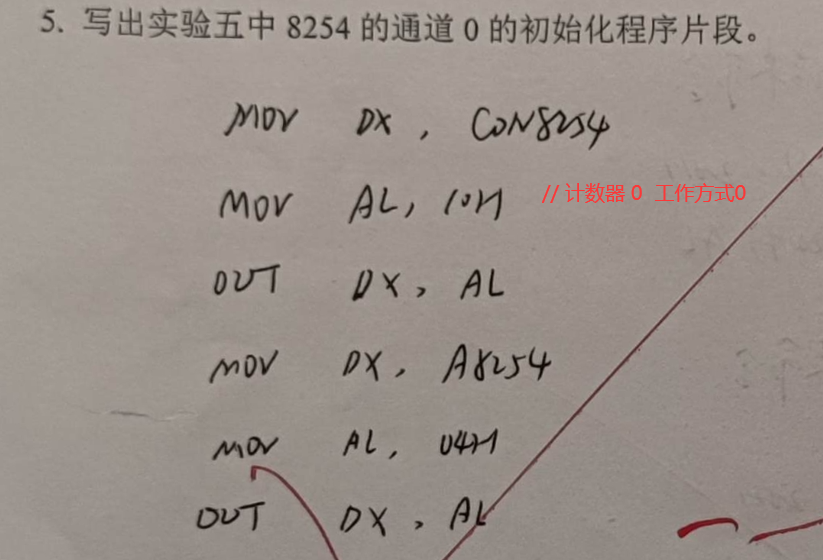 5. 写出实验五中 8254 的通道 0 的初始化程序片段。
MOV DX, CON8254
MOV AL, 10H // 计数器 0 工作方式0
OUT DX, AL
MOV DX, A8254
MOV AL, 04H
OUT DX, AL